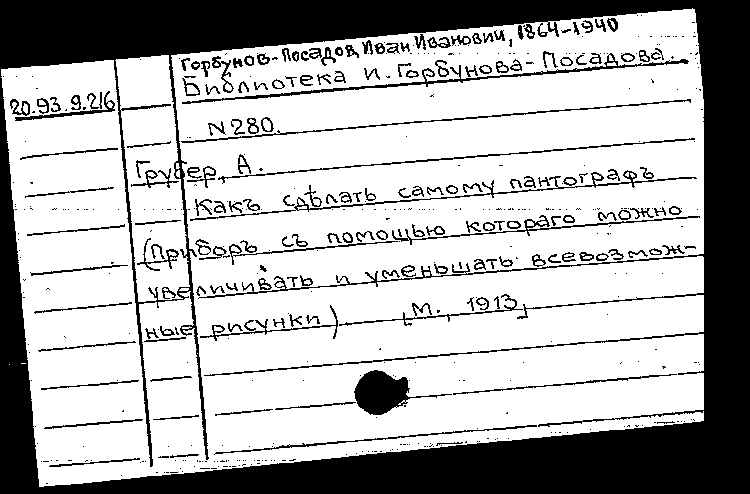 Горбунов-Посадов, Иван Иванович, 1864-1940
Библиотека И. Горбунова-Посадова.
20.93.9.216
N280.
Грубер, А.
Какъ сдѣлать самому пантографъ
(Приборъ съ помощью котораго можно
увеличивать и уменьшать всевозмож-
ные рисунки) [М., 1913]